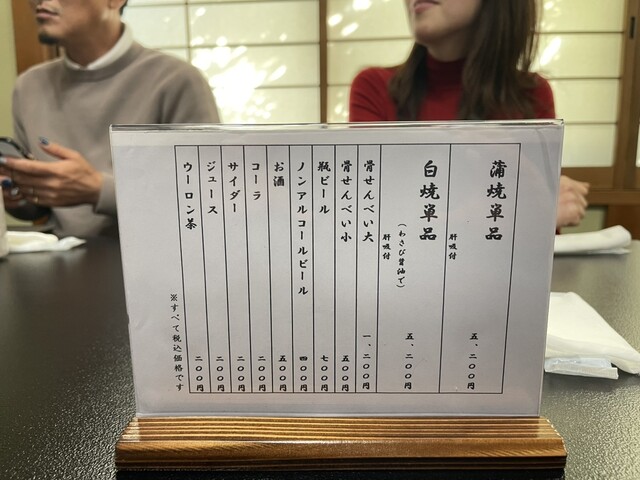 蒲焼単品
肝吸付
五、二〇〇円
白焼単品
(わさび醤油で)
肝吸付
五、二〇〇円
骨せんべい大
一、二〇〇円
骨せんべい小
五〇〇円
瓶ビール
七〇〇円
ノンアルコールビール
四〇〇円
お酒
五〇〇円
コーラ
二〇〇円
サイダー
二〇〇円
ジュース
二〇〇円
ウーロン茶
二〇〇円
※すべて税込価格です